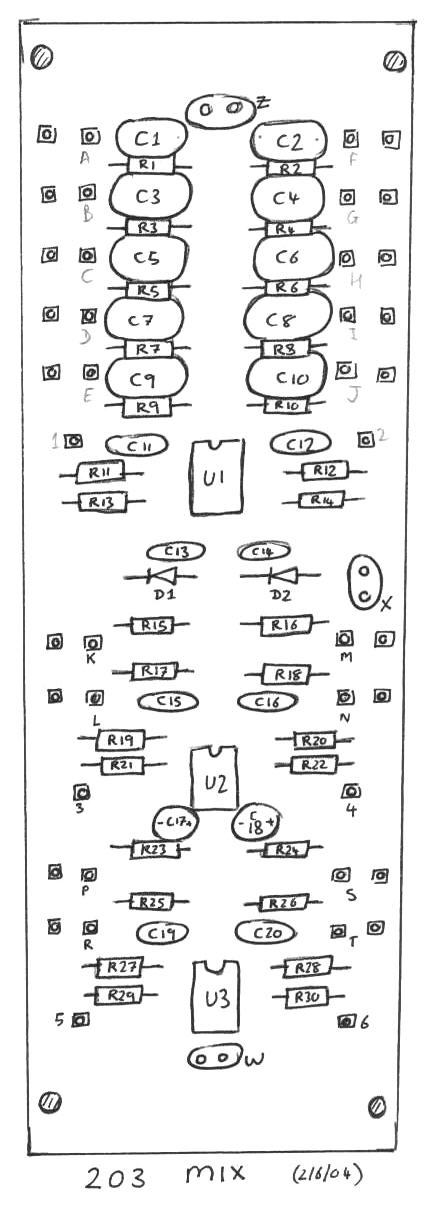 Z
C1 C2
A F
R1 R2
C3 C4
B G
R3 R4
C5 C6
C H
R5 R6
C7 C8
D I
R7 R8
C9 C10
E J
R9 R10
1 C11 C12 2
R11 U1 R12
R13 R14
C13 C14
D1 D2
X
R15 R16
K M
R17 R18
L C15 C16 N
R19 R20
R21 U2 R22
3 4
-C17+ -C18+
R23 R24
P S
R25 R26
R C19 C20 T
R27 R28
R29 U3 R30
5 6
W
203 MIX (2/6/04)